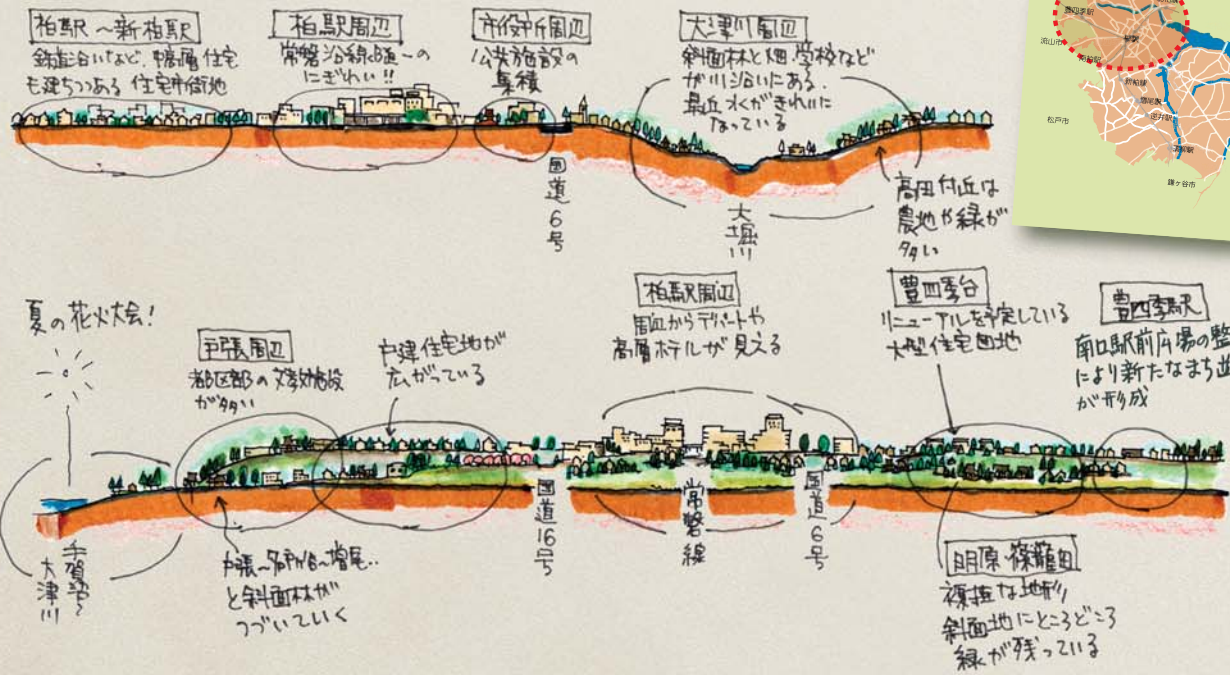 柏駅〜新柏駅
鉄道沿いなど、中高層住宅
も建ちつつある 住宅市街地
柏駅周辺
常磐沿線随一の
にぎわい!!
市役所周辺
公共施設の
集積
大津川周辺
斜面林と畑、学校など
が川沿いにある.
最近水がきれいに
なっている
国道6号
大堀川
高田付近は
農地や緑が
多い
豊四季駅
流山市
柏駅
南柏駅
新柏駅
増尾駅
逆井駅
高柳駅
松戸市
鎌ヶ谷市
夏の花火大会!
戸張周辺
都区部の文教施設
が多い
戸建住宅地が
広がっている
柏駅周辺
周辺からデパートや
高層ホテルが見える
豊四季台
リニューアルを予定している
大型住宅団地
豊四季駅
南口駅前広場の整
により新たなまち並
が形成
手賀沼〜
大津川
戸張〜名戸ヶ谷〜増尾..
と斜面林が
つづいていく
国道16号
常磐線
国道6号
明原・篠籠田
複雑な地形
斜面地にところどころ
緑が残っている